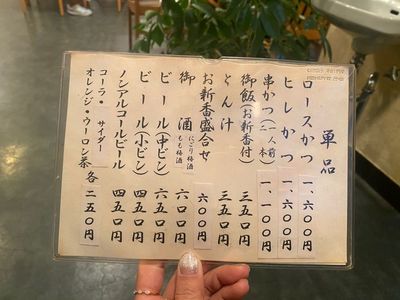 単品
ロースかつ 一、六〇〇円
ヒレかつ 一、六〇〇円
串かつ(一人前二本) 一、一〇〇円
御飯(お新香付) 三五〇円
とん汁 三五〇円
お新香盛合せ 六〇〇円
御酒 にごり梅酒 もも梅酒 六〇〇円
ビール(中ビン) 六五〇円
ビール(小ビン) 四五〇円
ノンアルコールビール 四五〇円
コーラ・サイダー
オレンジ・ウーロン茶 各二五〇円